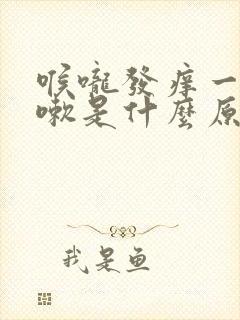 喉嚨發癢一
嗽是什麼原
我是鱼